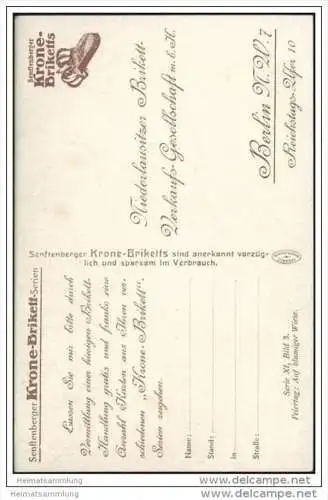 Senftenberger Krone-Brikett-Serien
Lassen Sie mir bitte durch
Vermittlung einer hiesigen Brikett-
Handlung gratis und franko eine
Anzahl Karten aus Ihren ver-
schiedenen „Krone-Brikett"-
Serien zugehen.
Name:
Stand:
in
Straße:
Serie XI, Bild 3.
Feiertag: Auf blumiger Wiese.
Senftenberger Krone-Briketts sind anerkannt vorzüg-
lich und sparsam im Verbrauch.
Senftenberger
Krone-
Briketts
Niederlausitzer Brikett-
Verkaufs-Gesellschaft m.b.H.
Berlin N.W. 7
Reichstags-Ufer 10
Heimatsammlung
Heimatsammlung
delcampe.net
delcampe.net